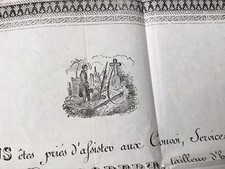 us êtes priés d'assister aux Convoi, Service
tailleur d'h